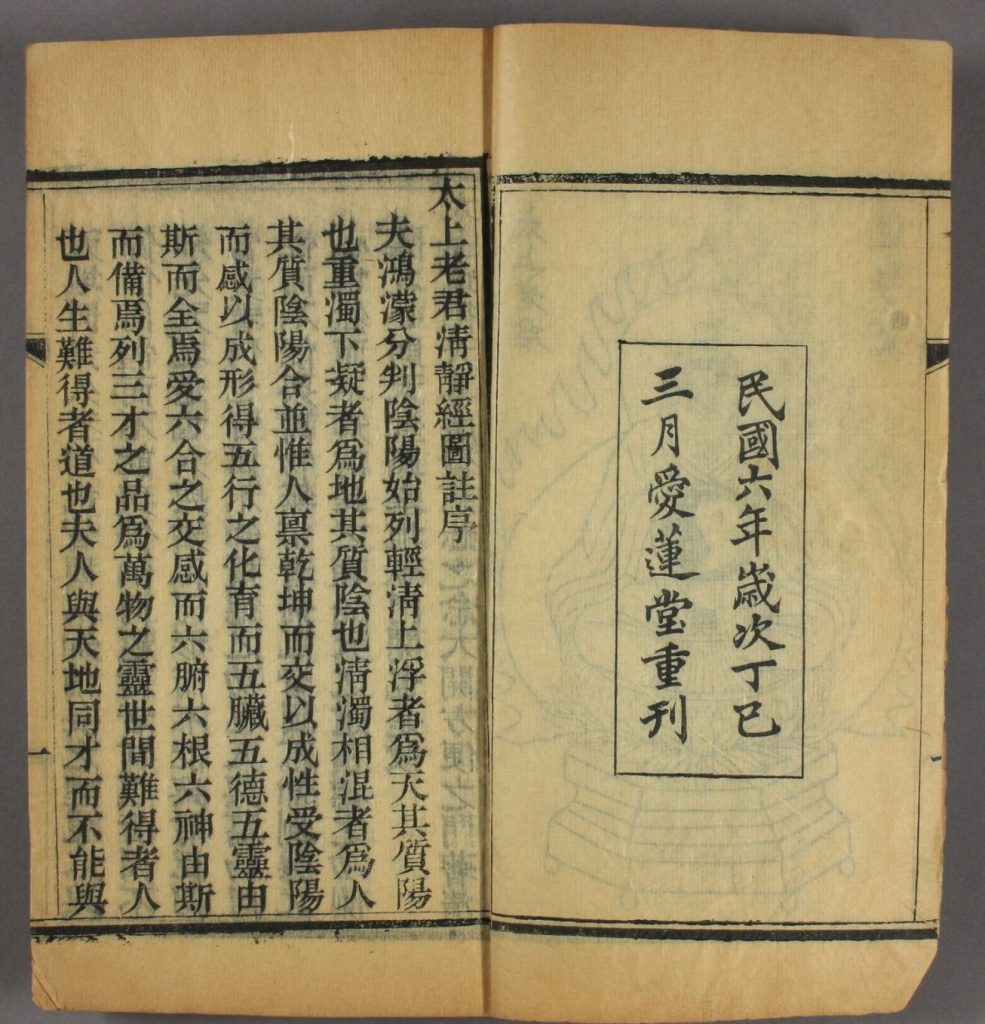 民國六年歲次丁巳
三月愛蓮堂重刊
太上老君淸靜經圖註序
夫鴻濛分判陰陽始列輕淸上浮者爲天其質陽
也重濁下凝者爲地其質陰也淸濁相混者爲人
其質陰陽合並惟人禀乾坤而交以成性受陰陽
而感以成形得五行之化育而五臟五德五靈由
斯而全焉愛六合之交感而六腑六根六神由斯
而備焉列三才之品爲萬物之靈世間難得者人
也人生難得者道也夫人與天地同才而不能與